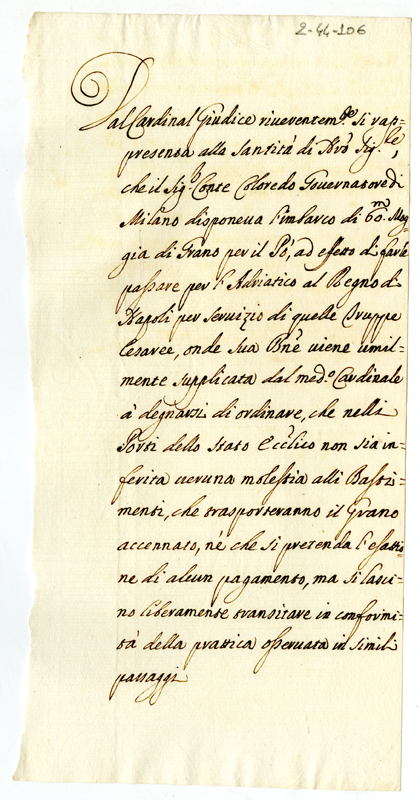 2-44-106
Dal Cardinal Giudice riverentem.te si rap=
presenta alla Santità di Nro Sig.re,
che il Sig.r Conte Coloredo Governatore di
Milano disponeva l'imbarco di 60.m Mog=
gia di Grano per il Pò, ad effetto di farle
passare per l'Adriatico al Regno di
Napoli per servizio di quelle Truppe
Cesaree, onde sua Bne viene umil=
mente supplicata dal med.o Cardinale
à degnarsi di ordinare, che nelli
Porti dello Stato Ecclico non sia in=
ferita veruna molestia alli Basti=
menti, che trasporteranno il Grano
accennato, nè che si pretenda l'esattio=
ne di alcun pagamento, ma si lasci=
no liberamente transitare in conformi=
tà della prattica osservata in simili
passaggi